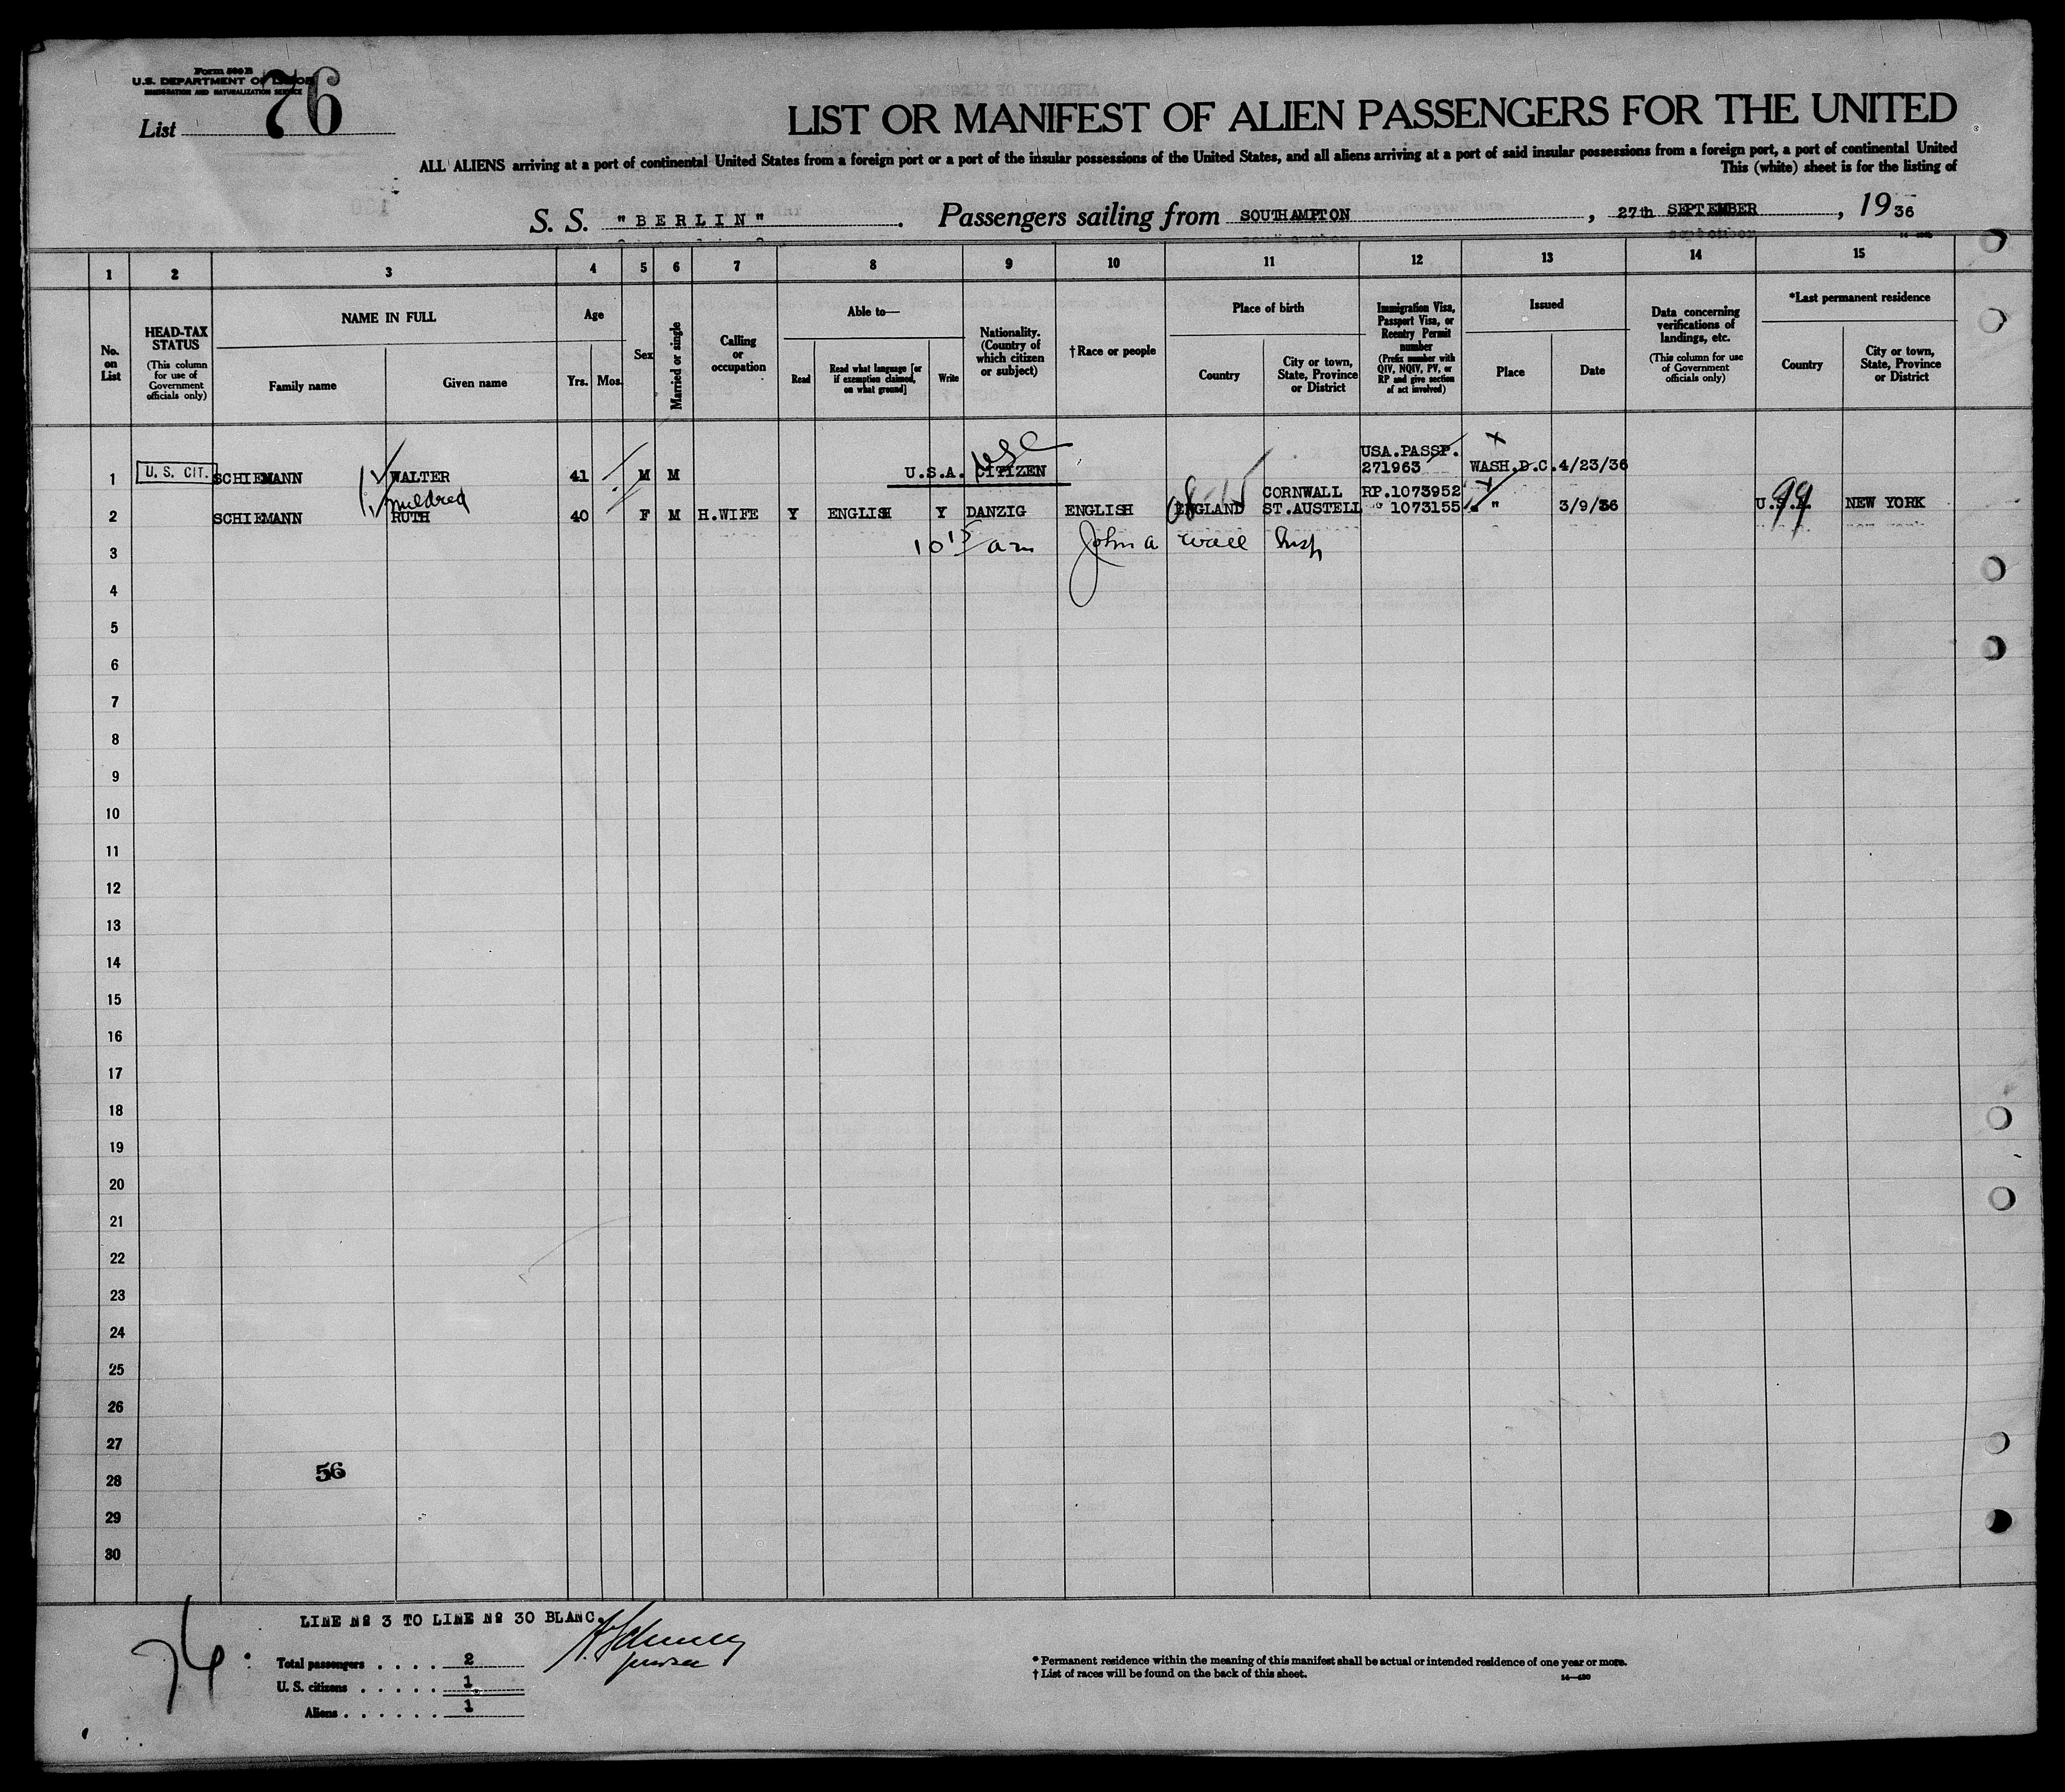 Form 500 B
U.S. DEPARTMENT OF LABOR
IMMIGRATION AND NATURALIZATION SERVICE
List 76
LIST OR MANIFEST OF ALIEN PASSENGERS FOR THE UNITED
ALL ALIENS arriving at a port of continental United States from a foreign port or a port of the insular possessions of the United States, and all aliens arriving at a port of said insular possessions from a foreign port, a port of continental United
This (white) sheet is for the listing of
S. S. "BERLIN". Passengers sailing from SOUTHAMPTON, 27th SEPTEMBER, 1936
1 2 3 4 5 6 7 8 9 10 11 12 13 14 15
No. on List
HEAD-TAX STATUS
(This column for use of Government officials only)
NAME IN FULL
Family name Given name
Age
Yrs. Mos.
Sex
Married or single
Calling or occupation
Able to—
Read
Read what language [or if exemption claimed, on what ground]
Write
Nationality. (Country of which citizen or subject)
†Race or people
Place of birth
Country
City or town, State, Province or District
Immigration Visa, Passport Visa, or Reentry Permit number
(Prefix number with QIV, NQIV, PV, or RP and give section of act involved)
Issued
Place Date
Data concerning verifications of landings, etc.
(This column for use of Government officials only)
*Last permanent residence
Country
City or town, State, Province or District
1 U. S. CIT. SCHIEMANN WALTER 41 M M U.S.A. CITIZEN USC USA.PASSP. 271963 WASH.D.C. 4/23/36
Mildred
2 SCHIEMANN RUTH 40 F M H.WIFE Y ENGLISH Y DANZIG ENGLISH ENGLAND CORNWALL ST.AUSTELL RP.1073952 " 1073155 " 3/9/36 U.S.A. 99 NEW YORK
3 10 15 am John A Wall Insp
4
5
6
7
8
9
10
11
12
13
14
15
16
17
18
19
20
21
22
23
24
25
26
27
28 56
29
30
LINE № 3 TO LINE № 30 BLANC.
76
Total passengers . . . . 2
U. S. citizens . . . . . 1
Aliens . . . . . . 1
purser
* Permanent residence within the meaning of this manifest shall be actual or intended residence of one year or more.
† List of races will be found on the back of this sheet.